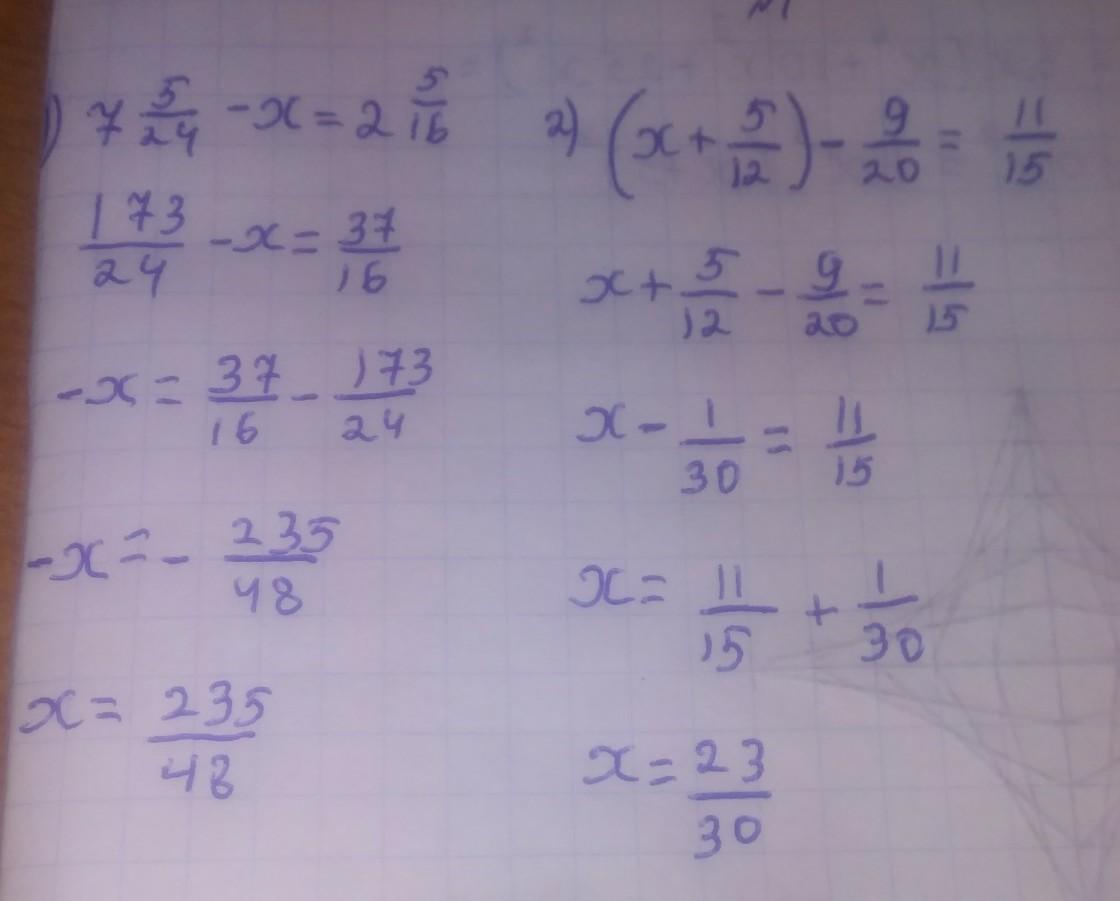 1) 7 5/24 - x = 2 5/16
173/24 - x = 37/16
-x = 37/16 - 173/24
-x = - 235/48
x = 235/48
2) (x + 5/12) - 9/20 = 11/15
x + 5/12 - 9/20 = 11/15
x - 1/30 = 11/15
x = 11/15 + 1/30
x = 23/30